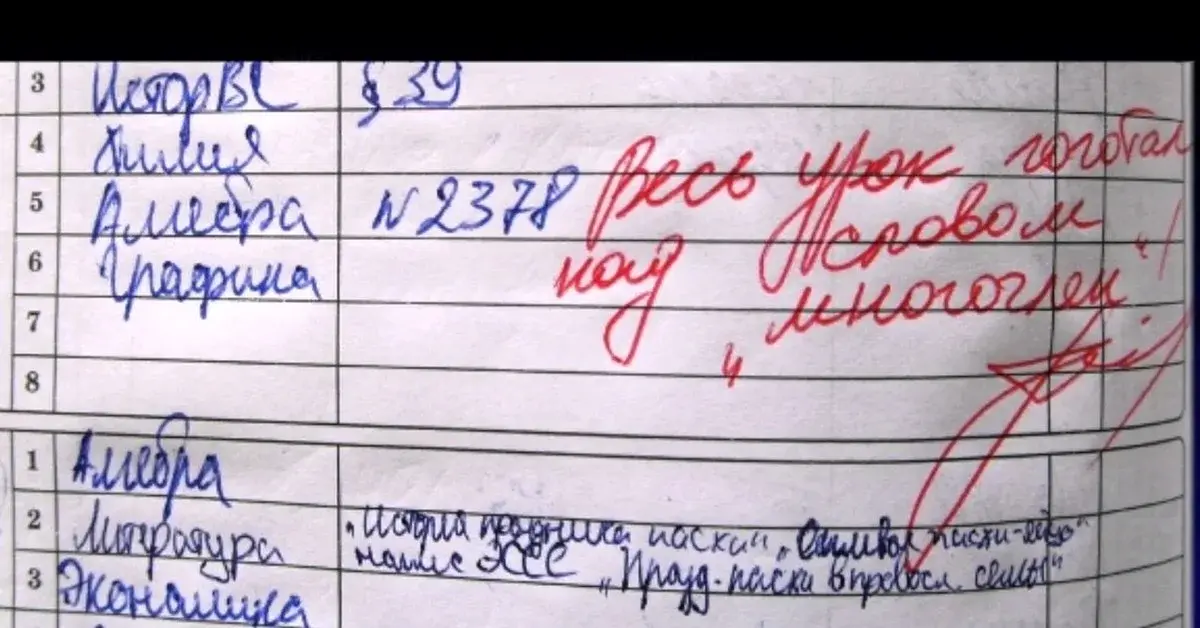 3 ИсторВС § 39
4 Химия
5 Алгебра N 2378
6 Графика
7
8
Весь урок гоготал
над словом
„многочлен“!
1 Алгебра
2 Литература „История праздника пасхи“ „Символ пасхи-яйцо“
напис ЭССЕ „Празд. пасхи в правосл. семье“
3 Экономика